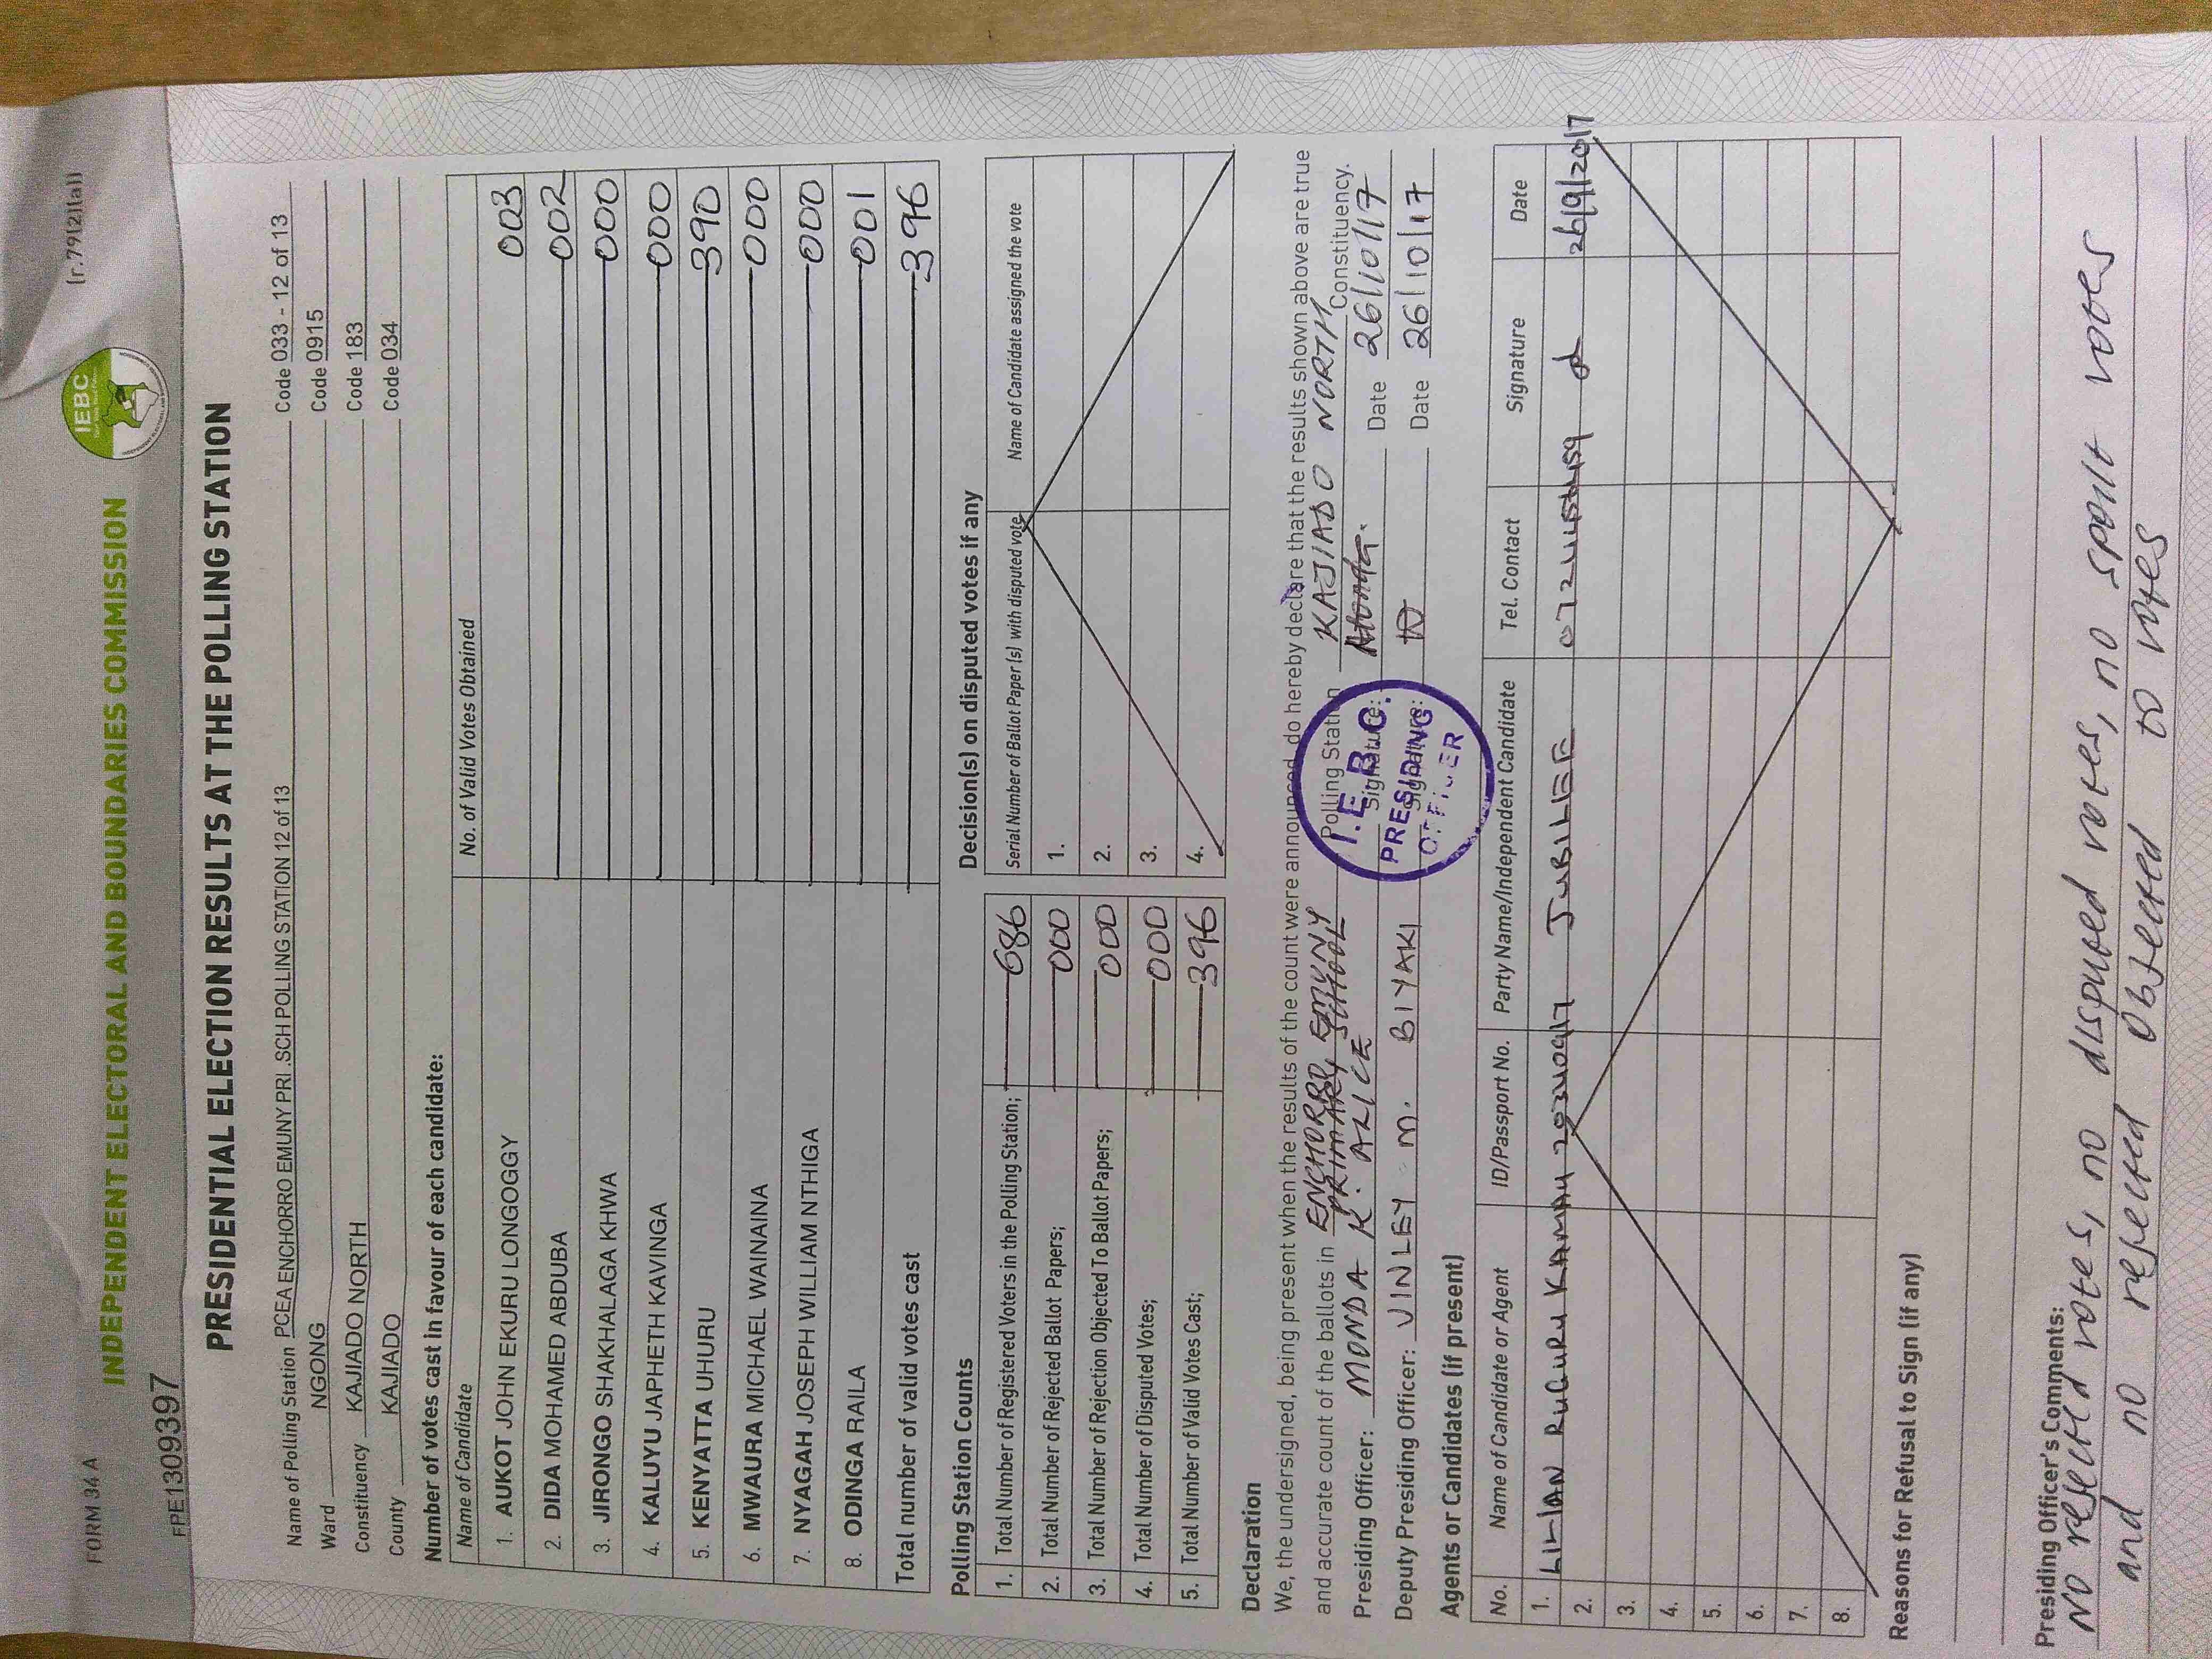 FORM 34 A
(r.79(2)(a))
INDEPENDENT ELECTORAL AND BOUNDARIES COMMISSION
IEBC
FPE1309397
PRESIDENTIAL ELECTION RESULTS AT THE POLLING STATION
Name of Polling Station PCEA ENCHORRO EMUNY PRI .SCH POLLING STATION 12 of 13 Code 033 - 12 of 13
Ward NGONG Code 0915
Constituency KAJIADO NORTH Code 183
County KAJIADO Code 034
Number of votes cast in favour of each candidate:
Name of Candidate No. of Valid Votes Obtained
1. AUKOT JOHN EKURU LONGOGGY 003
2. DIDA MOHAMED ABDUBA 002
3. JIRONGO SHAKHALAGA KHWA 000
4. KALUYU JAPHETH KAVINGA 000
5. KENYATTA UHURU 390
6. MWAURA MICHAEL WAINAINA 000
7. NYAGAH JOSEPH WILLIAM NTHIGA 000
8. ODINGA RAILA 001
Total number of valid votes cast 396
Polling Station Counts
1. Total Number of Registered Voters in the Polling Station; 686
2. Total Number of Rejected Ballot Papers; 000
3. Total Number of Rejection Objected To Ballot Papers; 000
4. Total Number of Disputed Votes; 000
5. Total Number of Valid Votes Cast; 396
Decision(s) on disputed votes if any
Serial Number of Ballot Paper (s) with disputed vote Name of Candidate assigned the vote
1.
2.
3.
4.
Declaration
We, the undersigned, being present when the results of the count were announced, do hereby declare that the results shown above are true
and accurate count of the ballots in ENCHORRO EMUNY PRIMARY SCHOOL Polling Station KAJIADO NORTH Constituency.
Presiding Officer: MONDA K. ALICE Signature: Date 26/10/17
Deputy Presiding Officer: VINLEY M. BIYAKI Signature: Date 26/10/17
I.E.B.C.
PRESIDING
OFFICER
Agents or Candidates (if present)
No. Name of Candidate or Agent ID/Passport No. Party Name/Independent Candidate Tel. Contact Signature Date
1. LILIAN RUGURU KAMAU JUBILEE 26/9/2017
2.
3.
4.
5.
6.
7.
8.
Reasons for Refusal to Sign (if any)
Presiding Officer's Comments:
NO rejected votes, no disputed votes, no spoilt votes
and no rejected objected to votes